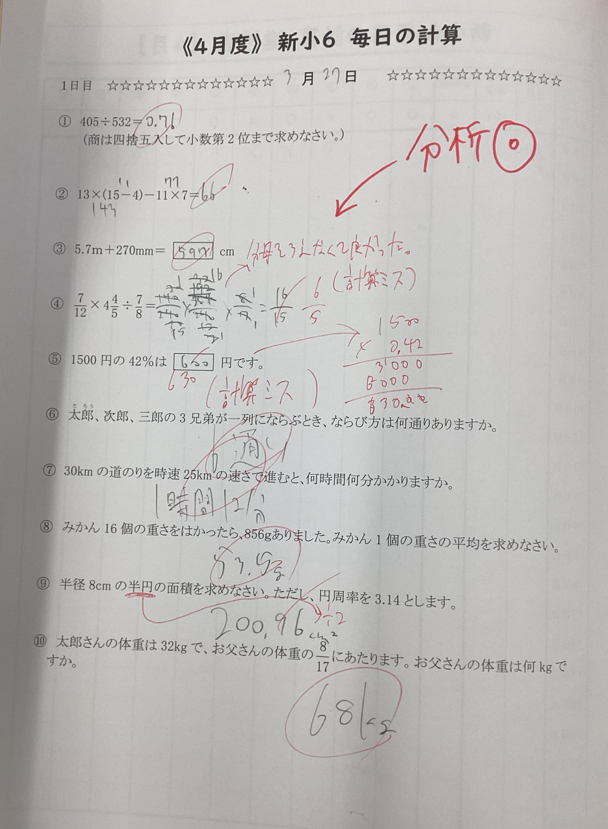 《4月度》 新小6 毎日の計算
1日目 ☆☆☆☆☆☆☆☆☆☆☆☆☆ 3月27日 ☆☆☆☆☆☆☆☆☆☆☆☆☆
① 405÷532=0.76
(商は四捨五入して小数第2位まで求めなさい。)
分析
11 77
② 13×(15−4)−11×7=66
143
③ 5.7m+270mm= cm
④ 7/12 × 4 4/5 ÷ 7/8 = 16/15 6/5 (計算ミス)
⑤ 1500円の42%は 600 円です。
630 (計算ミス)
1500
× 0.42
3000
6000
⑥ 太郎、次郎、三郎の3兄弟が一列にならぶとき、ならび方は何通りありますか。
6通り
⑦ 30kmの道のりを時速25kmの速さで進むと、何時間何分かかりますか。
1時間12分
⑧ みかん16個の重さをはかったら、856gありました。みかん1個の重さの平均を求めなさい。
53.5g
⑨ 半径8cmの半円の面積を求めなさい。ただし、円周率を3.14とします。
÷2
200.96cm2
⑩ 太郎さんの体重は32kgで、お父さんの体重の8/17にあたります。お父さんの体重は何kgで
すか。
68kg